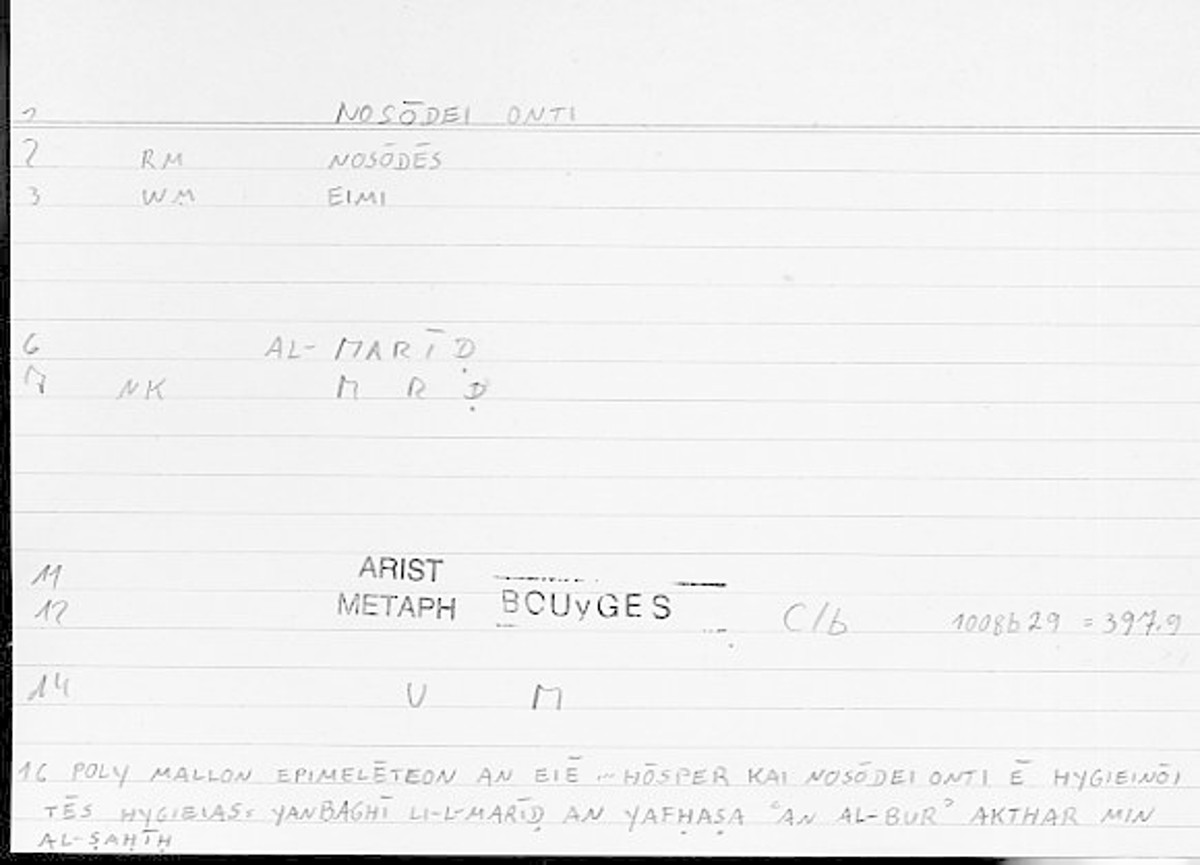 1 NOSŌDEI ONTI
2 RM NOSŌDĒS
3 WM EIMI
6 AL-MARĪḌ
7 NK M R Ḍ
11 ARIST
12 METAPH BOUYGES C/b 1008b29 = 397.9
14 U M
16 POLY MALLON EPIMELĒTEON AN EIĒ ... HŌSPER KAI NOSŌDEI ONTI Ē HYGIEINŌI
TĒS HYGIEIAS: YANBAGHĪ LI-L-MARĪḌ AN YAFḤAṢA ʿAN AL-BURʾ AKTHAR MIN
AL-ṢAḤĪḤ